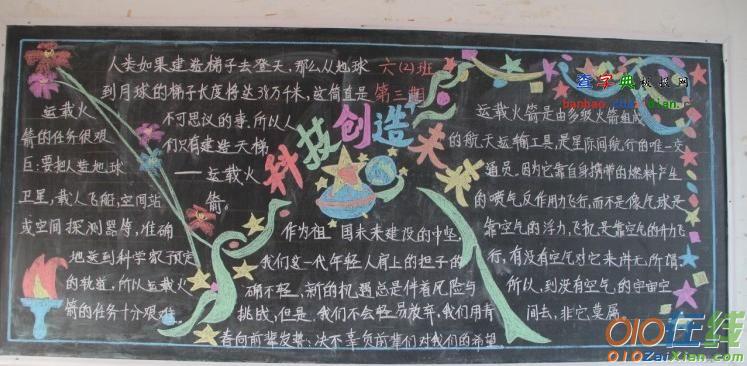 人类如果建造梯子去登天，那么从地球
到月球的梯子长度将达38万千米，这简直是
不可思议的事，所以人
们只有建造天梯
——运载火
箭。
六(2)班
第三期
运载火
箭的任务很艰
巨：要把人造地球
卫星，载人飞船，空间站
或空间探测器等，准确
地送到科学家预定
的轨道，所以运载火
箭的任务十分艰难
科技创造未来
作为祖国未来建设的中坚，
我们这一代年轻人肩上的担子的
确不轻，新的机遇总是伴着风险与
挑战，但是，我们不会轻易放弃，我们用青
春向前辈发誓，决不辜负前辈们对我们的希望
运载火箭是由多级火箭组成
的航天运输工具，是星际间航行的唯一交
通员。因为它靠自身携带的燃料产生
的喷气反作用力飞行，而不是像气球是
靠空气的浮力，飞机是靠空气的升力飞
行，有没有空气对它来讲无所谓。
所以，到没有空气的宇宙空
间去，非它莫属。
查字典板报网
banbao.chazidian.com
010在线
010ZaiXian.com